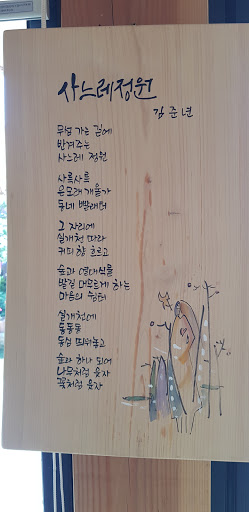 사느레정원
김준년
무넘 가는 길에
반겨주는
사느레 정원
사륵사륵
은모래 개울가
동네 빨래터
그 자리에
실개천 따라
커피향 흐르고
숲과 열대식물
발길 머무르게 하는
마음의 쉼터
실개천에
동동동
동심 띄워놓고
숲과 하나 되어
나무처럼 웃자
꽃처럼 웃자